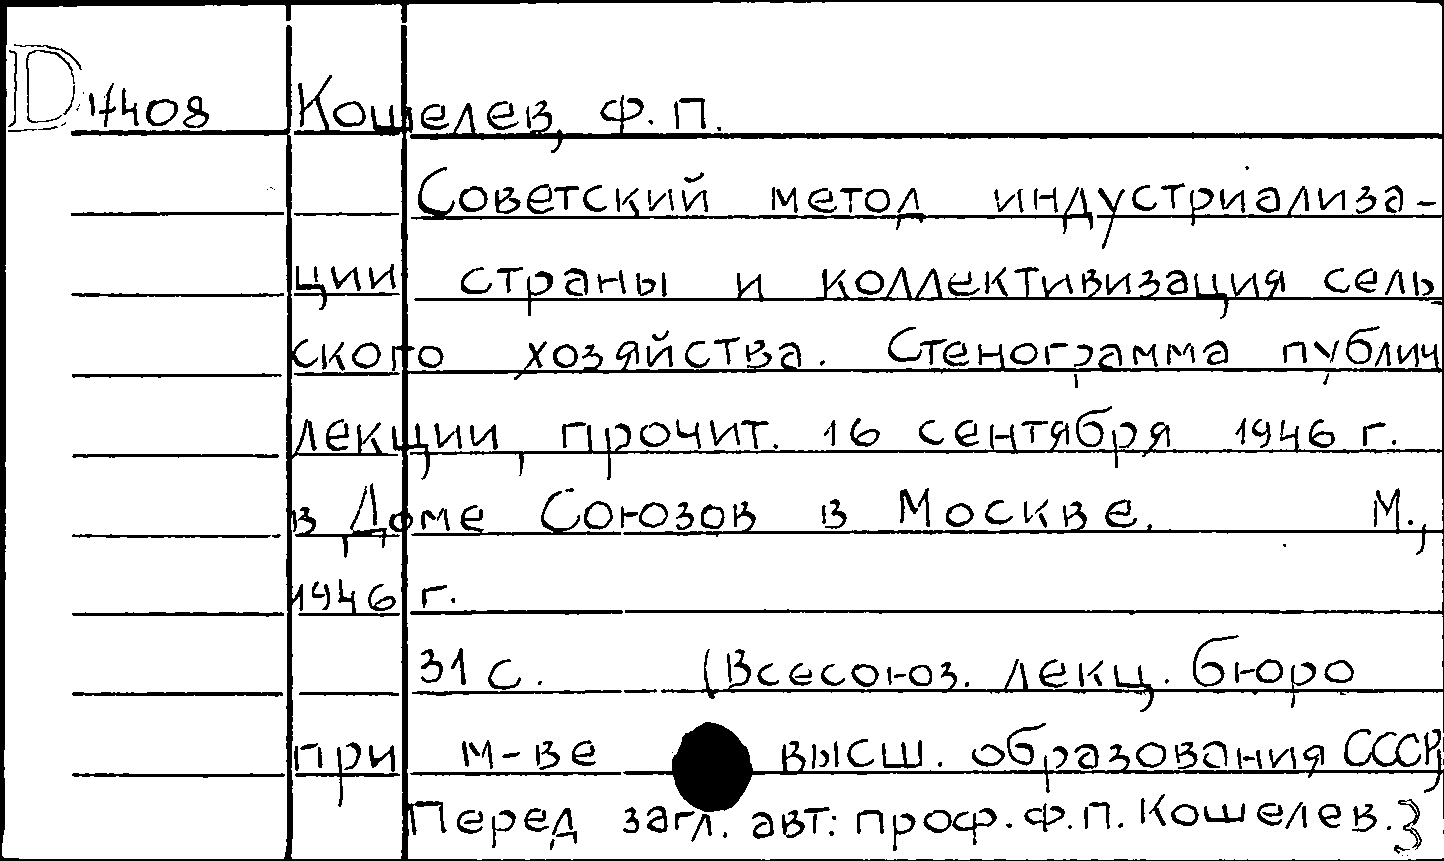 D 17408 Кошелев, Ф. П.
Советский метод индустриализа-
ции страны и коллективизация сель
ского хозяйства. Стенограмма публич
лекции, прочит. 16 сентября 1946 г.
в Доме Союзов в Москве. М.,
1946 г.
31 с. (Всесоюз. лекц. бюро
при м-ве высш. образования СССР)
Перед загл. авт: проф. Ф.П. Кошелев.